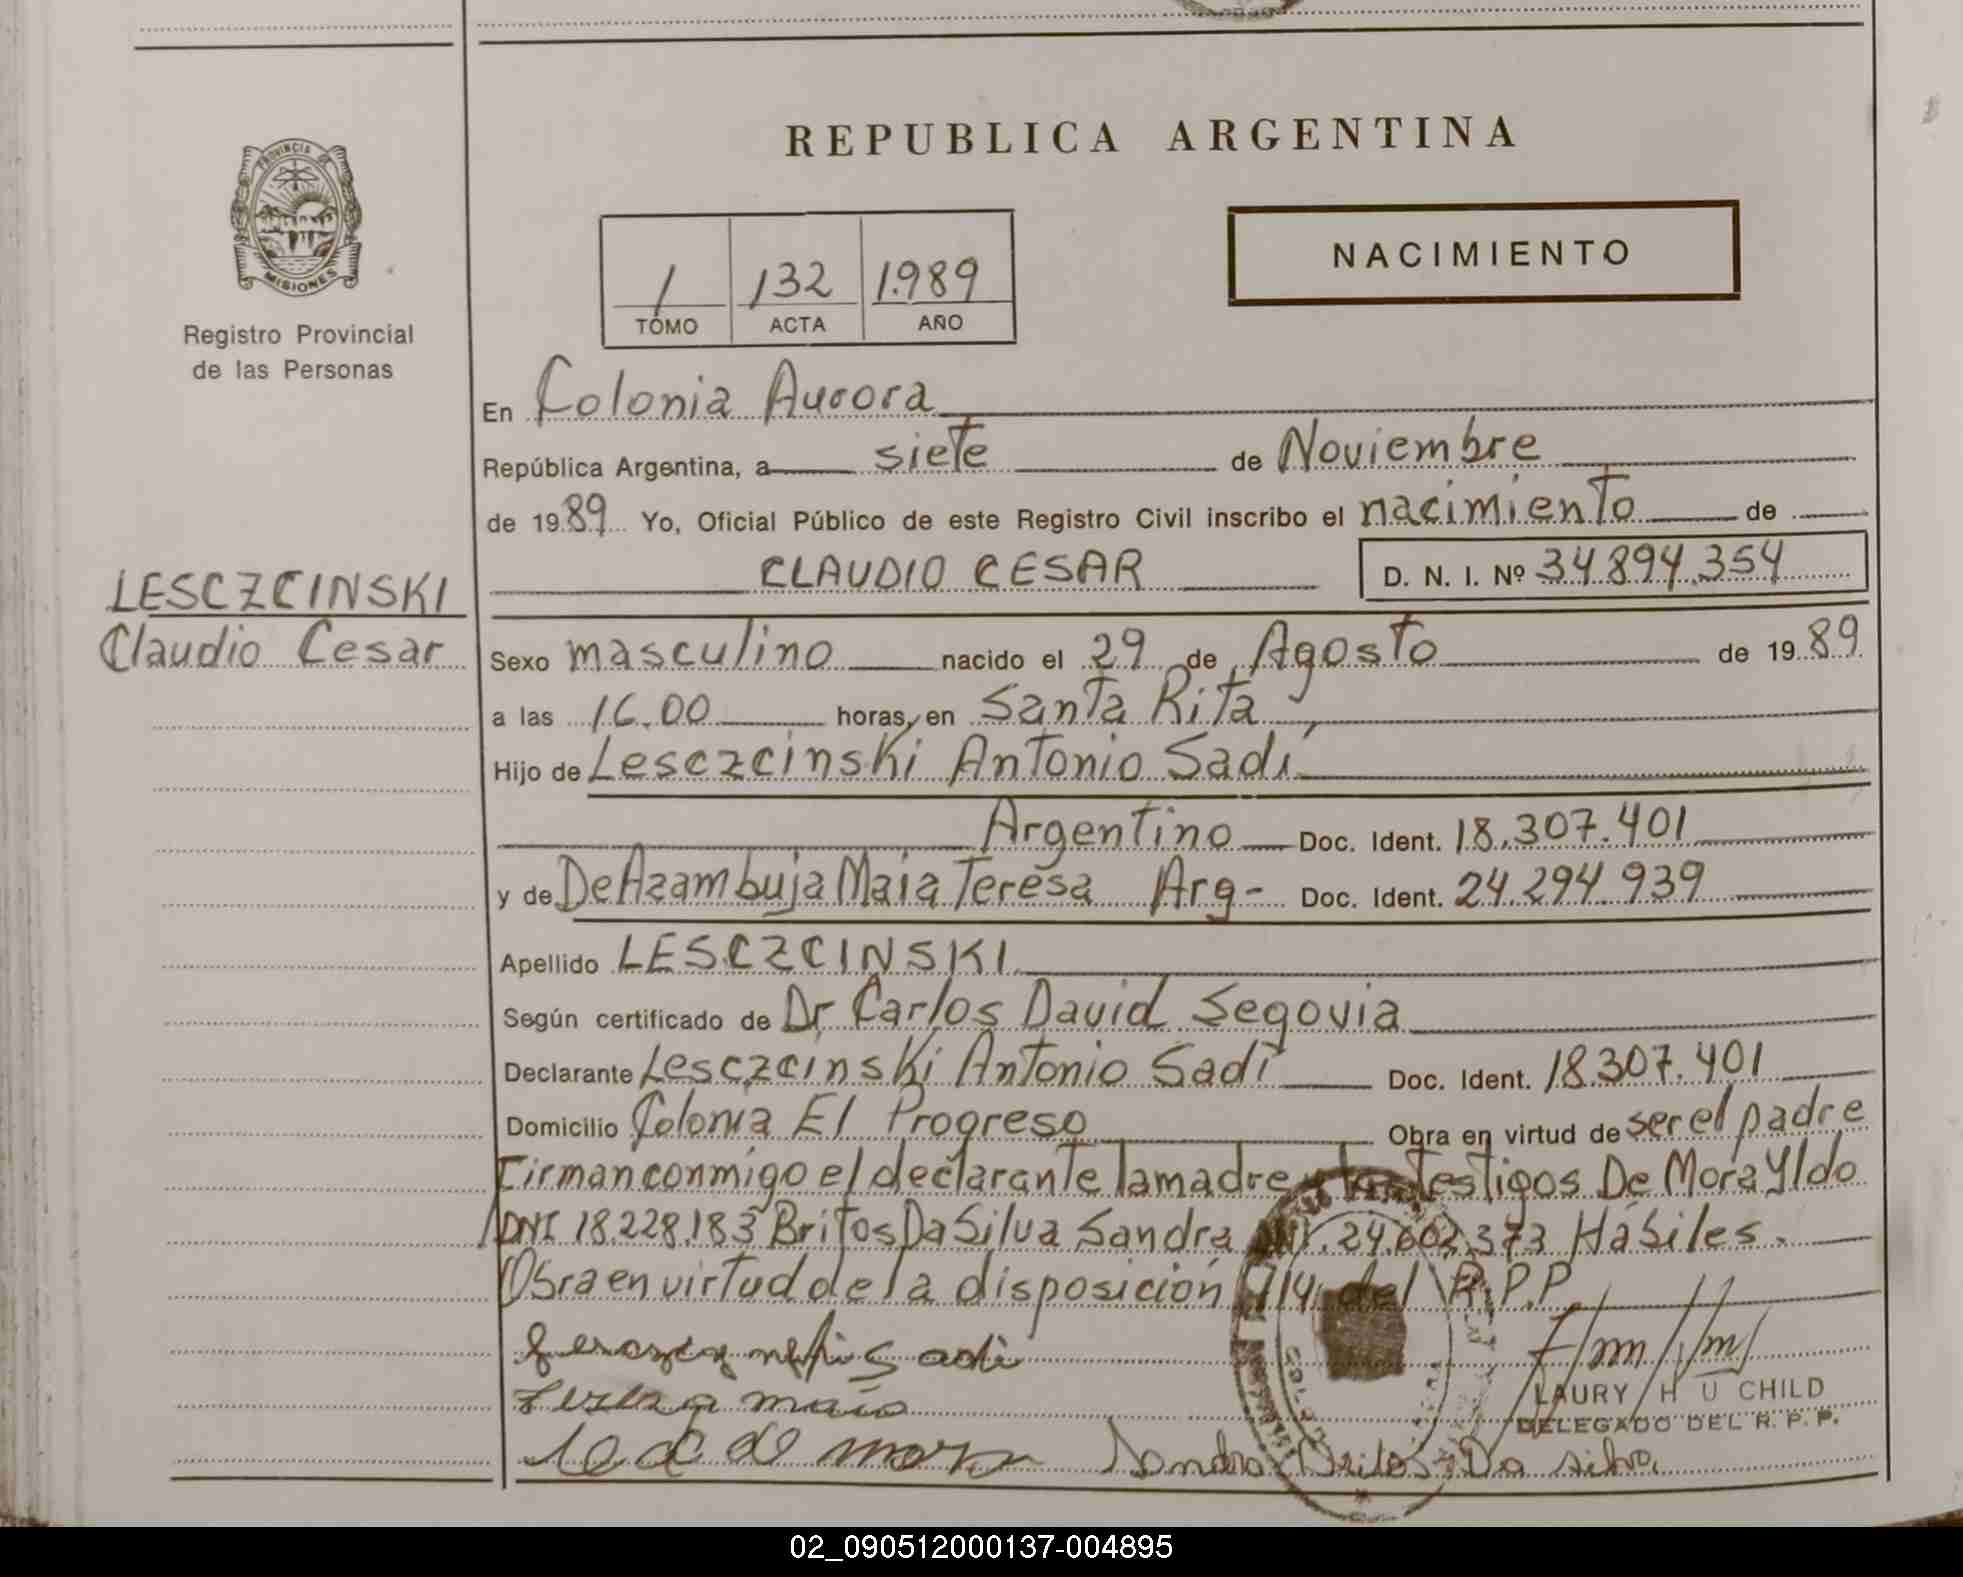 PROVINCIA DE
MISIONES
Registro Provincial
de las Personas
LESCZCINSKI
Claudio Cesar
REPUBLICA ARGENTINA
NACIMIENTO
1 132 1.989
TOMO ACTA AÑO
En Colonia Aurora
República Argentina, a siete de Noviembre
de 1989 Yo, Oficial Público de este Registro Civil inscribo el nacimiento de
CLAUDIO CESAR D. N. I. Nº 34.894.354
Sexo masculino nacido el 29 de Agosto de 1989
a las 16.00 horas, en Santa Rita
Hijo de Lesczcinski Antonio Sadi
Argentino Doc. Ident. 18.307.401
y de De Azambuja Maia Teresa Arg- Doc. Ident. 24.294.939
Apellido LESCZCINSKI
Según certificado de Dr Carlos David Segovia
Declarante Lesczcinski Antonio Sadi Doc. Ident. 18.307.401
Domicilio Colonia El Progreso Obra en virtud de ser el padre
Firman conmigo el declarante la madre y los testigos De Mora Yldo
DNI 18.228.183 Britos Da Silva Sandra DNI. 24.602.373 Hábiles.
Obra en virtud de la disposición 914 del R.P.P.
LAURY H U CHILD
DELEGADO DEL R. P. P.
Sandra Britos Da Silva.
02_090512000137-004895